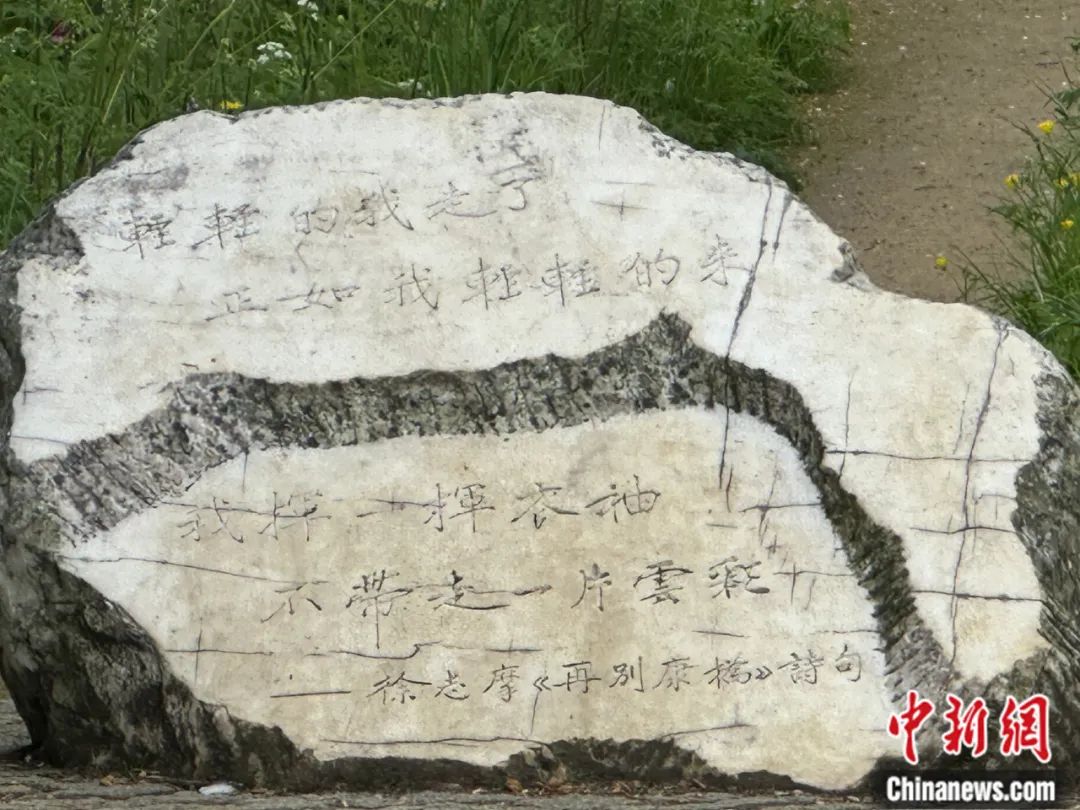 輕輕的我走了
正如我輕輕的來
我揮一揮衣袖
不帶走一片雲彩
——徐志摩《再別康橋》詩句
中新网
Chinanews.com